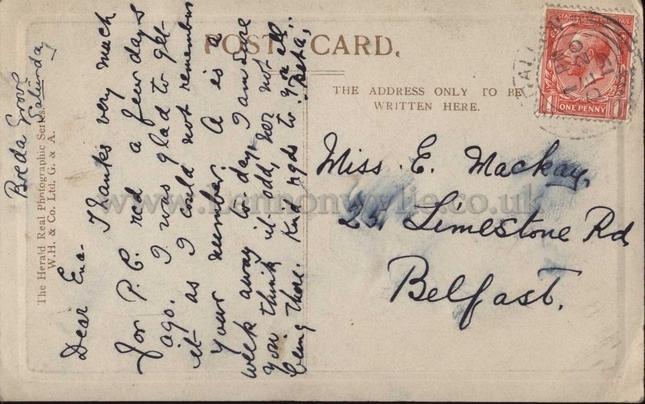 POST CARD.
THE ADDRESS ONLY TO BE
WRITTEN HERE.
ONE PENNY
The Herald Real Photographic Series
W.H. & Co. Ltd. G. & A.
www.cannonwylie.co.uk
Breda
Saturday
Dear Ena
Thanks very much
for P.C. recd a few days
ago. I was glad to get
it as I could not remember
your number. A is a
week away to-day, I am sure
you think it odd, nor not all
being there Kind rgds to
Miss E. Mackay,
Limestone Rd
Belfast.